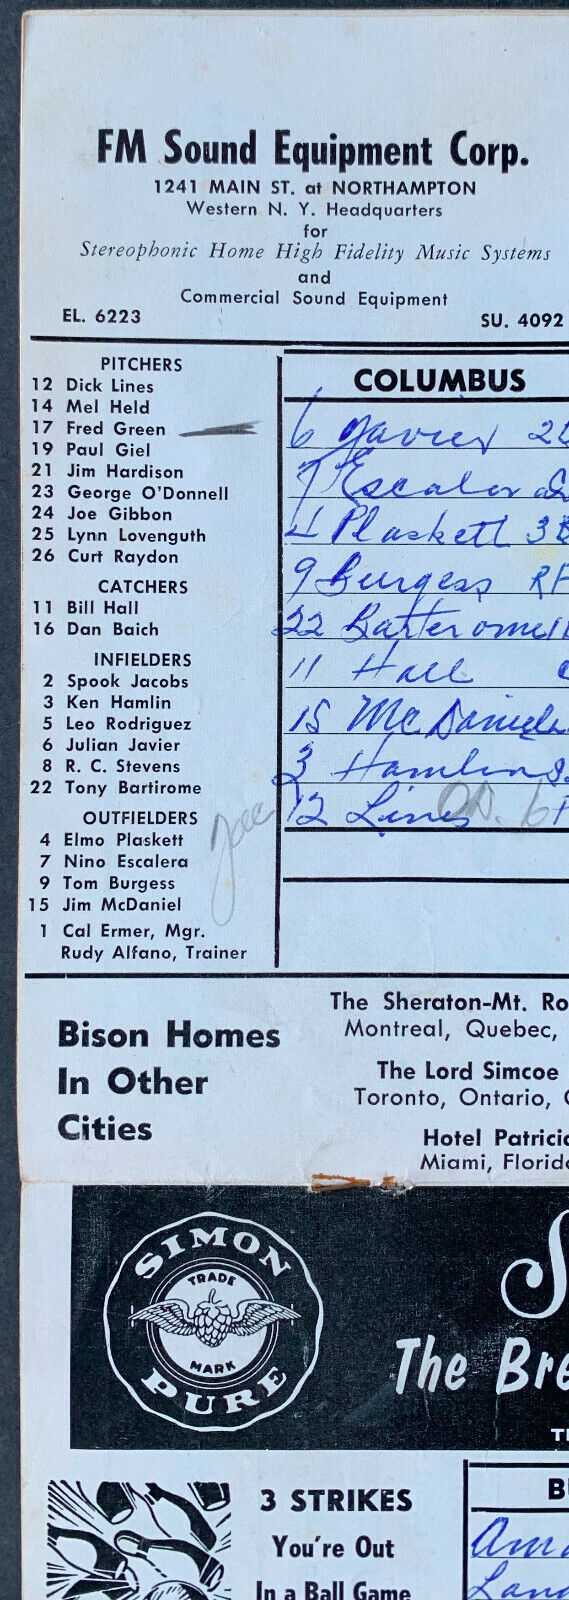 FM Sound Equipment Corp.
1241 MAIN ST. at NORTHAMPTON
Western N. Y. Headquarters
for
Stereophonic Home High Fidelity Music Systems
and
Commercial Sound Equipment
EL. 6223 SU. 4092
PITCHERS
12 Dick Lines
14 Mel Held
17 Fred Green
19 Paul Giel
21 Jim Hardison
23 George O'Donnell
24 Joe Gibbon
25 Lynn Lovenguth
26 Curt Raydon
CATCHERS
11 Bill Hall
16 Dan Baich
INFIELDERS
2 Spook Jacobs
3 Ken Hamlin
5 Leo Rodriguez
6 Julian Javier
8 R. C. Stevens
22 Tony Bartirome
OUTFIELDERS
4 Elmo Plaskett
7 Nino Escalera
9 Tom Burgess
15 Jim McDaniel
1 Cal Ermer, Mgr.
Rudy Alfano, Trainer
COLUMBUS
6 Javier 2
7 Escaler
4 Plaskett 3B
9 Burgess RF
22 Barterome
11 Hall
15 McDaniels
3 Hamlin S
12 Lines
Bison Homes
In Other
Cities
The Sheraton-Mt. Ro
Montreal, Quebec,
The Lord Simcoe
Toronto, Ontario,
Hotel Patricia
Miami, Florida
SIMON
TRADE
MARK
PURE
S
The Bre
3 STRIKES
You're Out
In a Ball Game
B
Am
Land